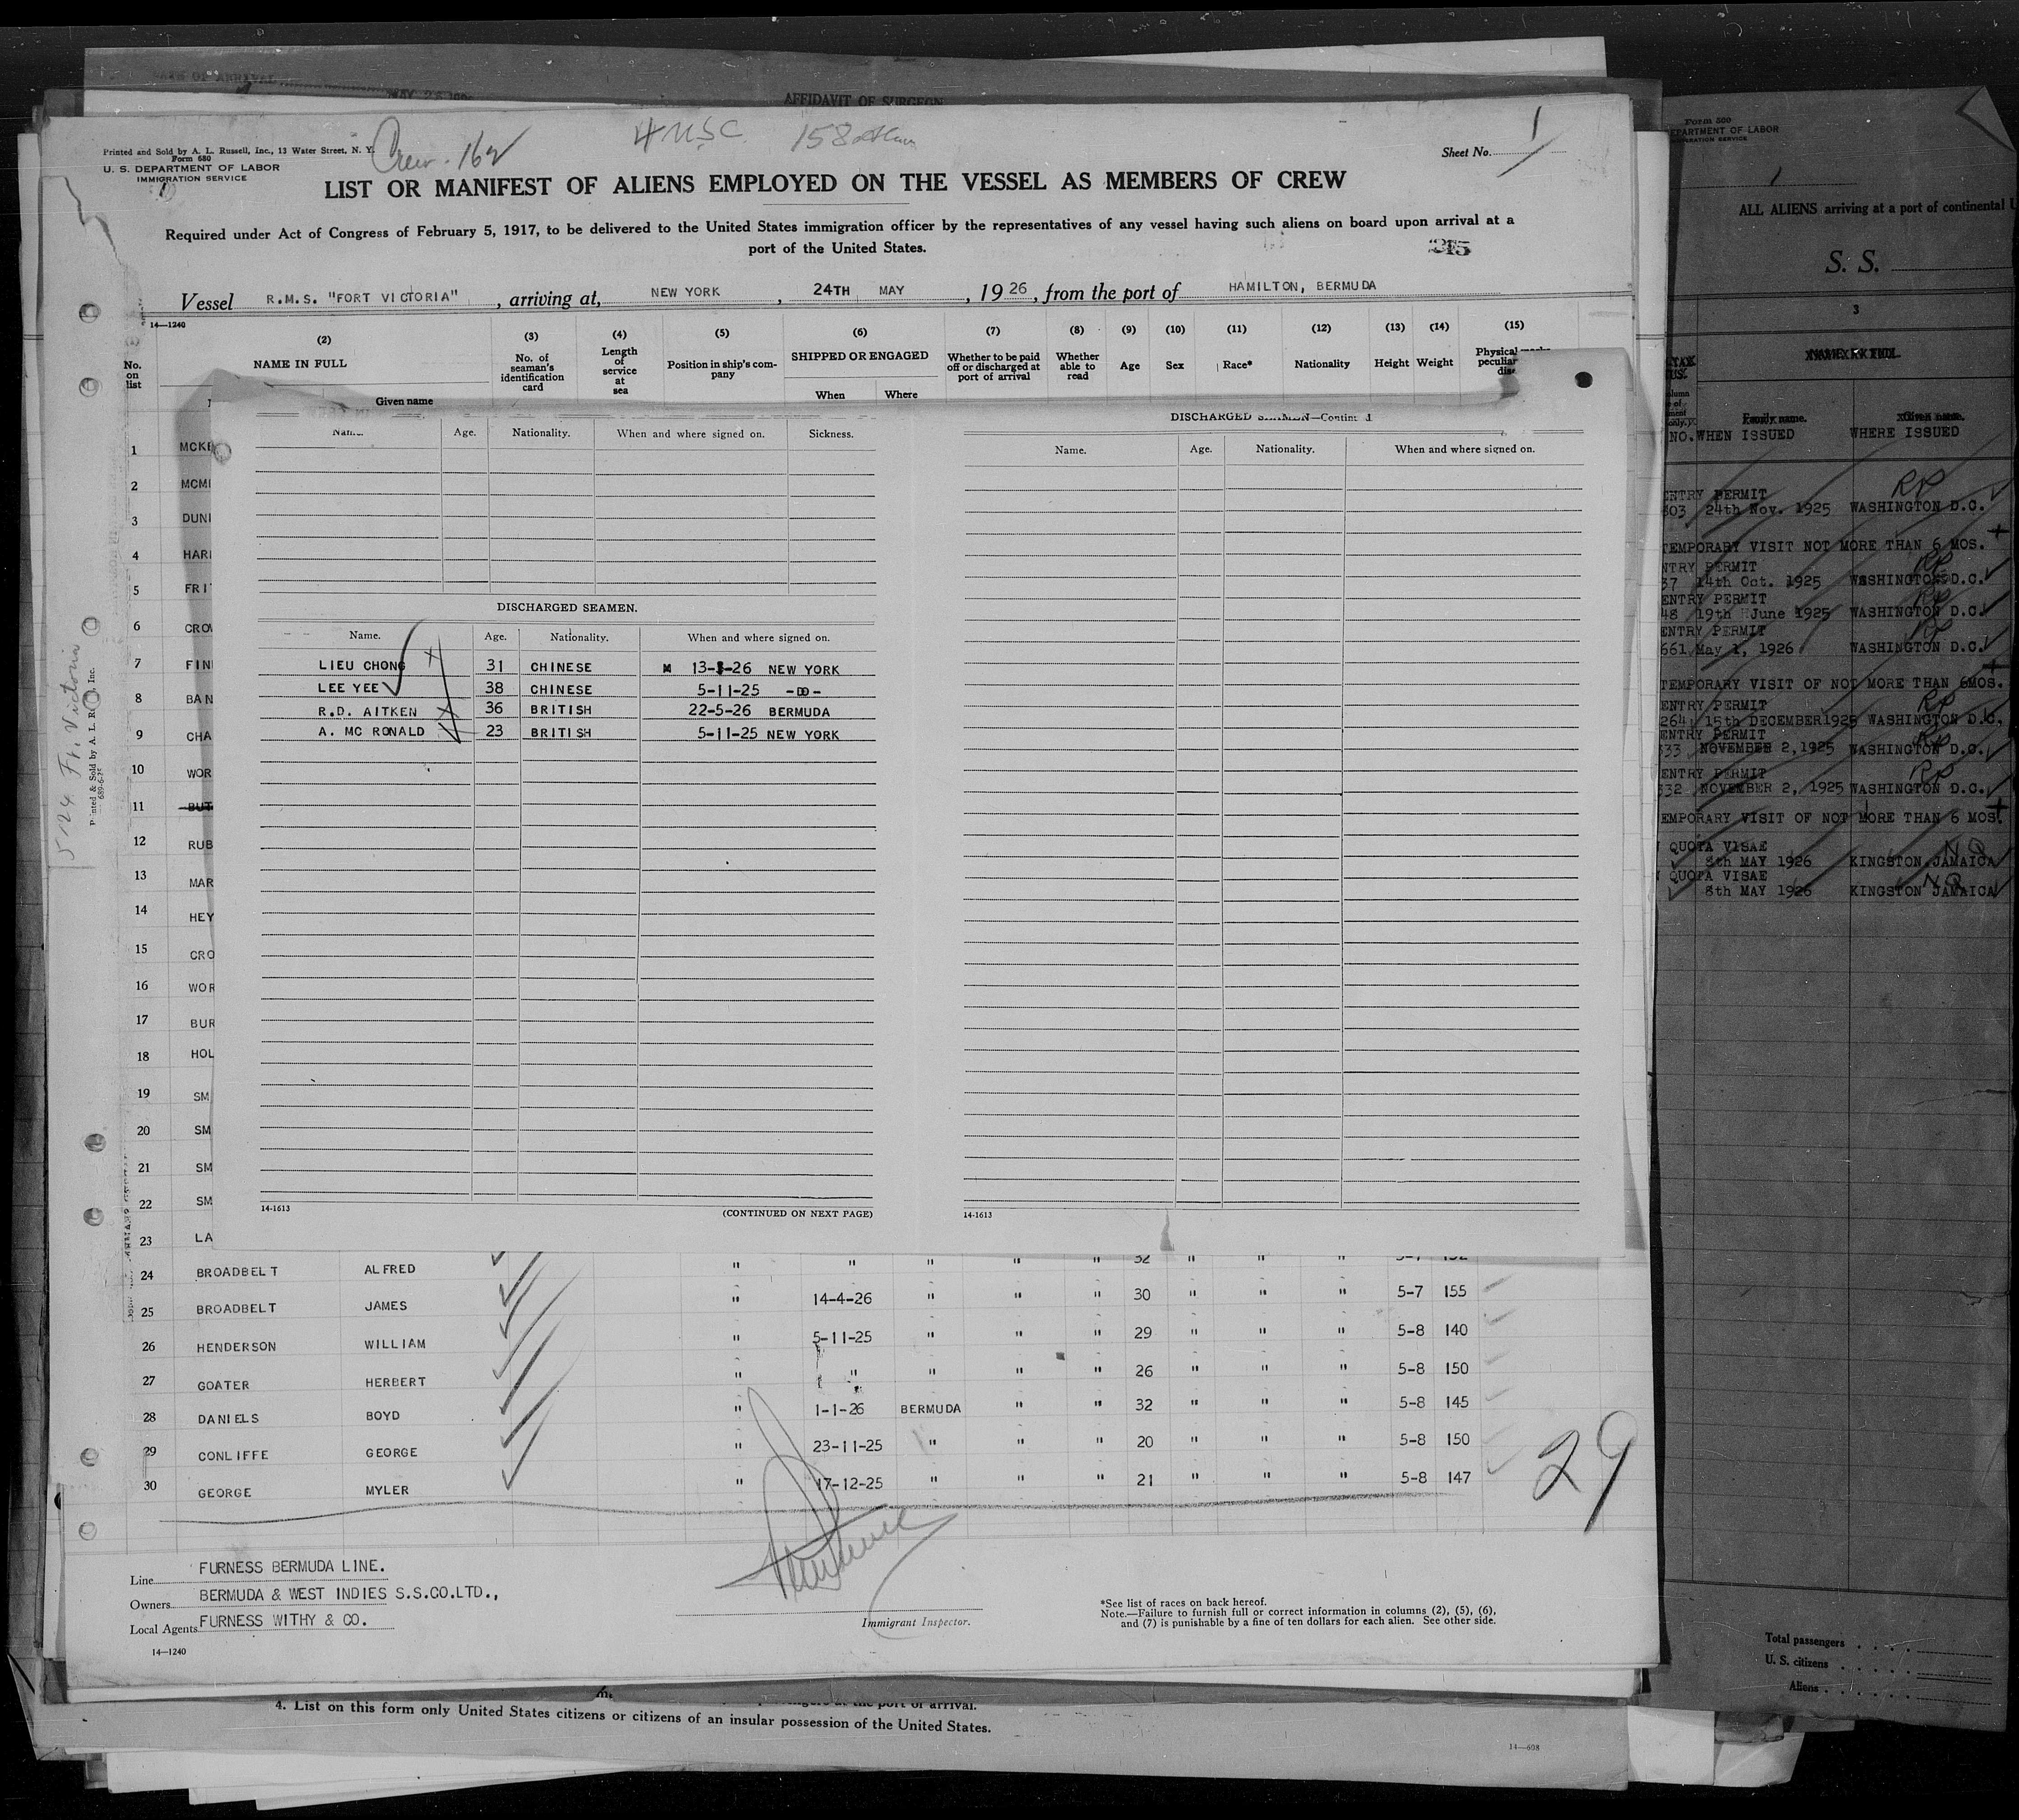 AFFIDAVIT OF SURGEON
Printed and Sold by A. L. Russell, Inc., 13 Water Street, N. Y.
Form 680
U. S. DEPARTMENT OF LABOR
IMMIGRATION SERVICE
Crew - 162
4 USC 158
Sheet No. 1
LIST OR MANIFEST OF ALIENS EMPLOYED ON THE VESSEL AS MEMBERS OF CREW
Required under Act of Congress of February 5, 1917, to be delivered to the United States immigration officer by the representatives of any vessel having such aliens on board upon arrival at a
port of the United States.
Vessel R.M.S. "FORT VICTORIA", arriving at, NEW YORK, 24TH MAY, 1926, from the port of HAMILTON, BERMUDA
14—1240
(2) (3) (4) (5) (6) (7) (8) (9) (10) (11) (12) (13) (14) (15)
No. on list
NAME IN FULL
Given name
No. of seaman's identification card
Length of service at sea
Position in ship's company
SHIPPED OR ENGAGED
When Where
Whether to be paid off or discharged at port of arrival
Whether able to read
Age
Sex
Race*
Nationality
Height
Weight
1 MCKE
2 MCMI
3 DUN
4 HAR
5 FRI
6 CRO
7 FIN
8 BAN
9 CHA
10 WOR
11 BUT
12 RUB
13 MAR
14 HEY
15 CRO
16 WOR
17 BUR
18 HOL
19 SM
20 SM
21 SM
22 SM
23 LA
Age. Nationality. When and where signed on. Sickness.
DISCHARGED SEAMEN.
Name. Age. Nationality. When and where signed on.
LIEU CHONG 31 CHINESE 13- -26 NEW YORK
LEE YEE 38 CHINESE 5-11-25 -DO-
R.D. AITKEN 36 BRITISH 22-5-26 BERMUDA
A. MC RONALD 23 BRITISH 5-11-25 NEW YORK
14-1613
(CONTINUED ON NEXT PAGE)
DISCHARGED SEAMEN—Continued
Name. Age. Nationality. When and where signed on.
14-1613
24 BROADBELT ALFRED " " " " " 32 " " "
25 BROADBELT JAMES " 14-4-26 " " " 30 " " " 5-7 155
26 HENDERSON WILLIAM " 5-11-25 " " " 29 " " " 5-8 140
27 GOATER HERBERT " " " " " 26 " " " 5-8 150
28 DANIELS BOYD " 1-1-26 BERMUDA " " 32 " " " 5-8 145
29 CONLIFFE GEORGE " 23-11-25 " " " 20 " " " 5-8 150
30 GEORGE MYLER " 17-12-25 " " " 21 " " " 5-8 147
29
Line FURNESS BERMUDA LINE.
Owners BERMUDA & WEST INDIES S.S.CO.LTD.,
Local Agents FURNESS WITHY & CO.
14—1240
Immigrant Inspector.
*See list of races on back hereof.
Note.—Failure to furnish full or correct information in columns (2), (5), (6),
and (7) is punishable by a fine of ten dollars for each alien. See other side.
5/24 Ft. Victoria
4. List on this form only United States citizens or citizens of an insular possession of the United States.
14—608
Form 500
DEPARTMENT OF LABOR
ALL ALIENS arriving at a port of continental
S. S.
3
Family name. Given name.
NO. WHEN ISSUED WHERE ISSUED
ENTRY PERMIT
303 24th Nov. 1925 WASHINGTON D.C.
TEMPORARY VISIT NOT MORE THAN 6 MOS.
ENTRY PERMIT
37 14th Oct. 1925 WASHINGTON D.C.
ENTRY PERMIT
48 19th June 1925 WASHINGTON D.C.
ENTRY PERMIT
661 May 1, 1926 WASHINGTON D.C.
TEMPORARY VISIT OF NOT MORE THAN 6MOS.
ENTRY PERMIT
264 15th DECEMBER1925 WASHINGTON D.C.
ENTRY PERMIT
333 NOVEMBER 2,1925 WASHINGTON D.C.
ENTRY PERMIT
332 NOVEMBER 2, 1925 WASHINGTON D.C.
TEMPORARY VISIT OF NOT MORE THAN 6 MOS.
QUOTA VISAE
8th MAY 1926 KINGSTON JAMAICA
QUOTA VISAE
8th MAY 1926 KINGSTON JAMAICA
Total passengers
U. S. citizens
Aliens